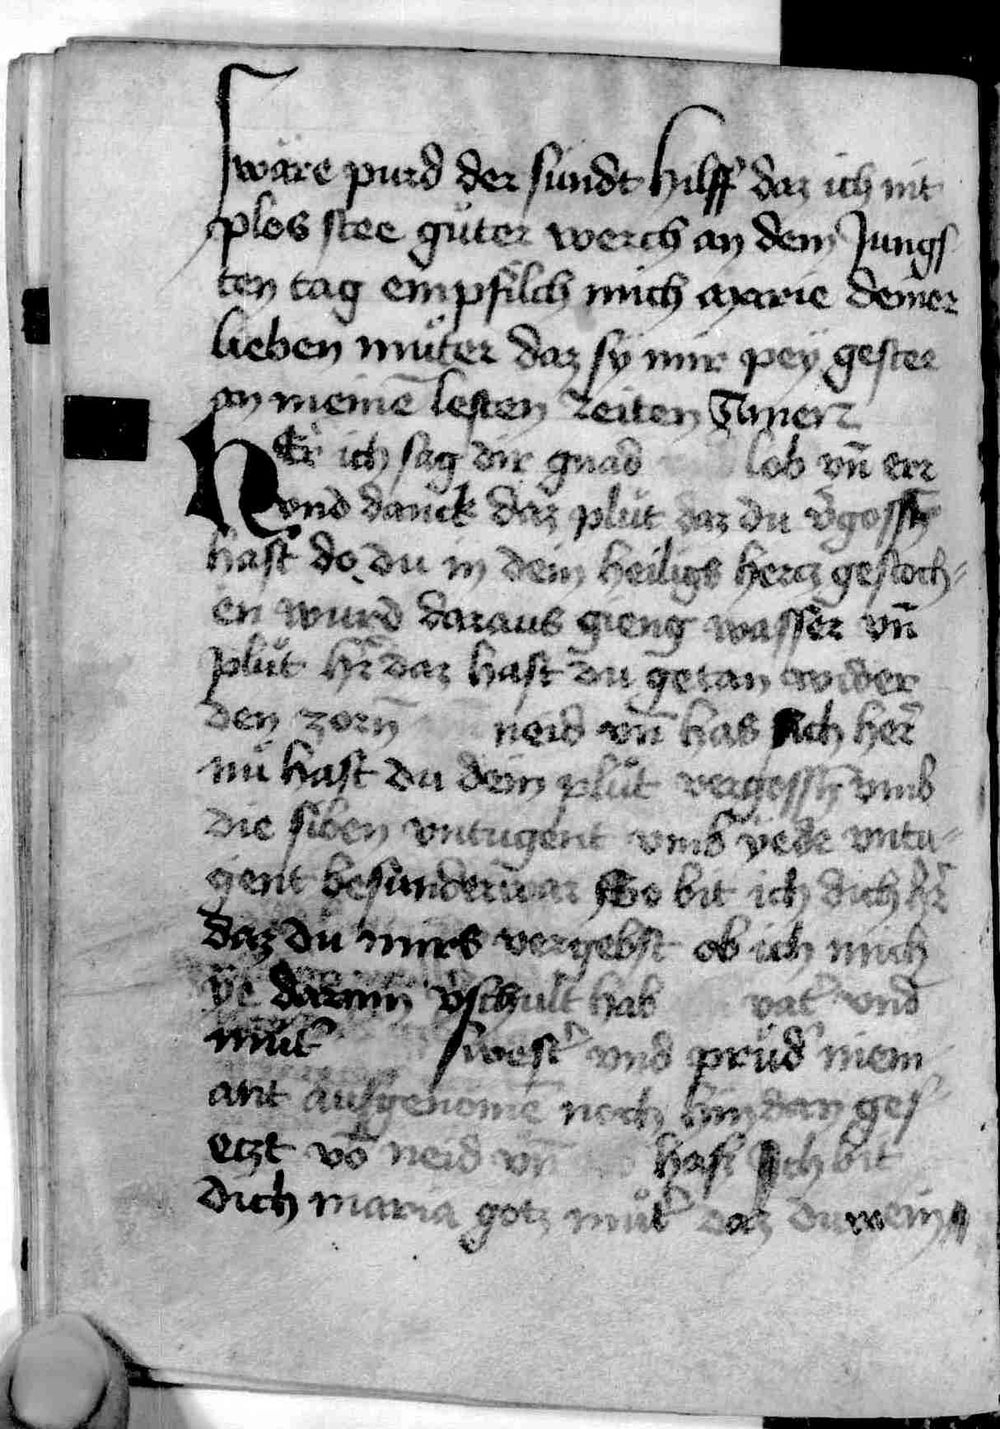 Sware purd der sündt hilff daz ich nit
plos stee güter werch an dem Jungs
ten tag empfilch mich marie deiner
lieben müter daz sy mir pey gestee
an meinē lesten zeiten Amen
HEr ich sag dir gnad lob vn̄ err
vnd danck daz plüt daz du v'gossn̄
hast do du in dein heiligs hercz gestoch=
en wurd daraus gieng wasser vn̄
plüt hr̄ daz hast du getan wider
den zorn̄ neid vn̄ has Ach her
nü hast du dein plüt vergossn̄ vmb
die siben vntugent vmb yede vntu=
gent besunder So bit ich dich hr̄
daz du mirs vergebst ob ich mich
ye darinn̄ v'schult hab vat' vnd
müt' swest' vnd prüd' niem
ant ausgenomē noch hindan ges
eczt vō neid vn̄ hass Ich bit
dich maria gotz müt' daz du mein